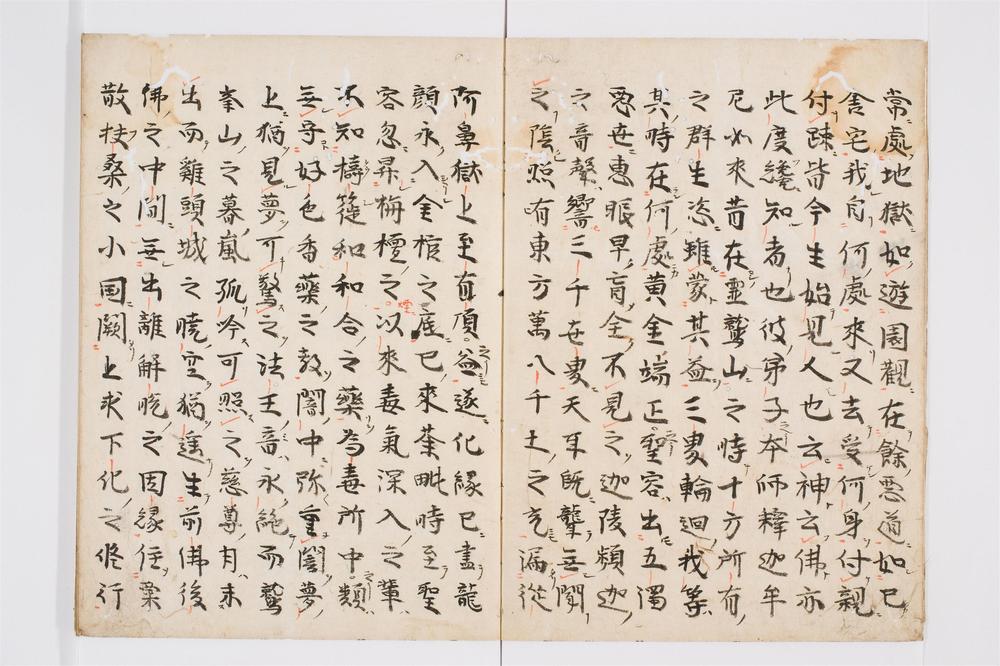 常處地獄如遊園觀在餘惡道如己
舍宅我自何處來又去受何身付親
付踈皆今生始見人也云神云佛亦
此度纔知者也彼弟子本師釋迦牟
尼如來昔在靈鷲山之時十方所有
之群生恣雖蒙其益三界輪迴我等
其時在何處黃金端正聖容出五濁
惡世惠眼早盲全不見之迦陵頻迦
之音聲響三千世界天耳既聾無聞
之陰照有東方萬八千土之光漏從
阿鼻獄上至有頂益遂化緣已盡龍
顏永入金棺之底已來荼毗時至聖
容忽昇栴檀之煙以來毒氣深入之輩
不知擣簁和合之藥為毒所中類
無了好色香藥之教闇中弥重闇夢
上猶見夢可驚之法王音永絶而鷲
峯山之暮嵐孤吟可照之慈尊月未
出而雞頭城之曉空猶遙生前佛後
佛之中間無出離解脫之因緣任業
散扶桑之小国闕上求下化之修行